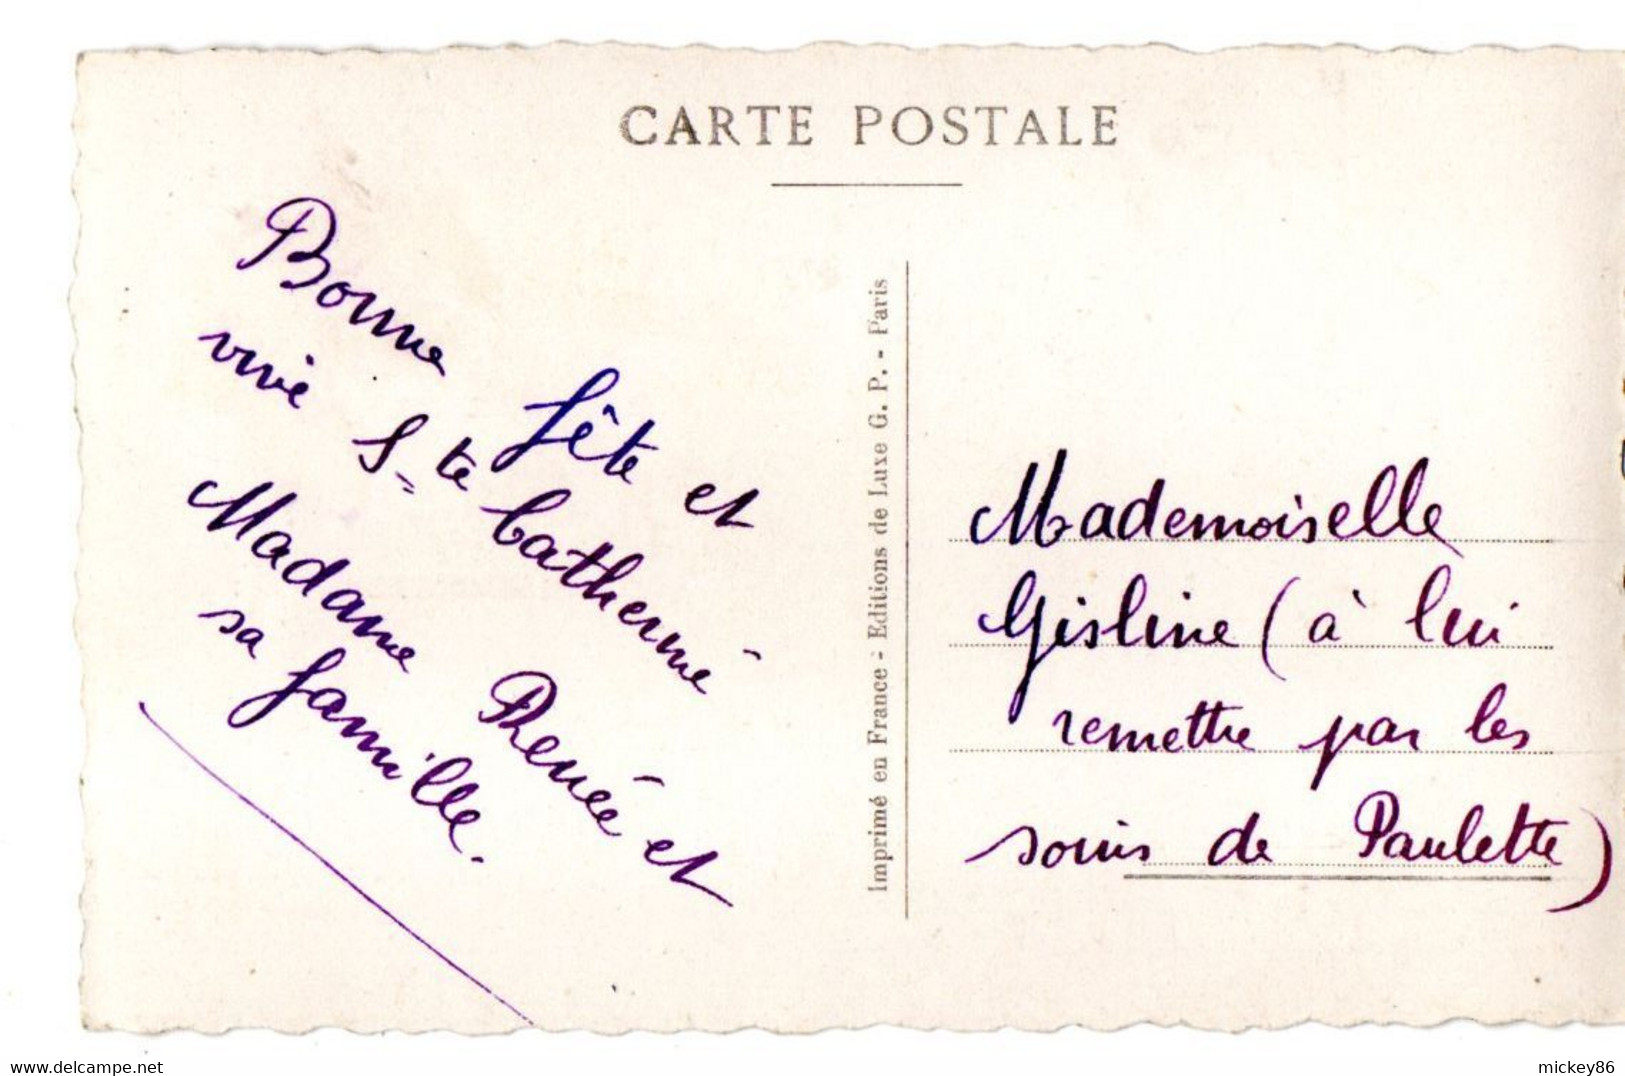 CARTE POSTALE
Bonne fête et
vive Ste Catherine
Madame Renée et
sa famille.
Imprimé en France - Editions de Luxe G. P. - Paris
Mademoiselle
Gisline (à lui
remettre par les
soins de Paulette)
mickey86